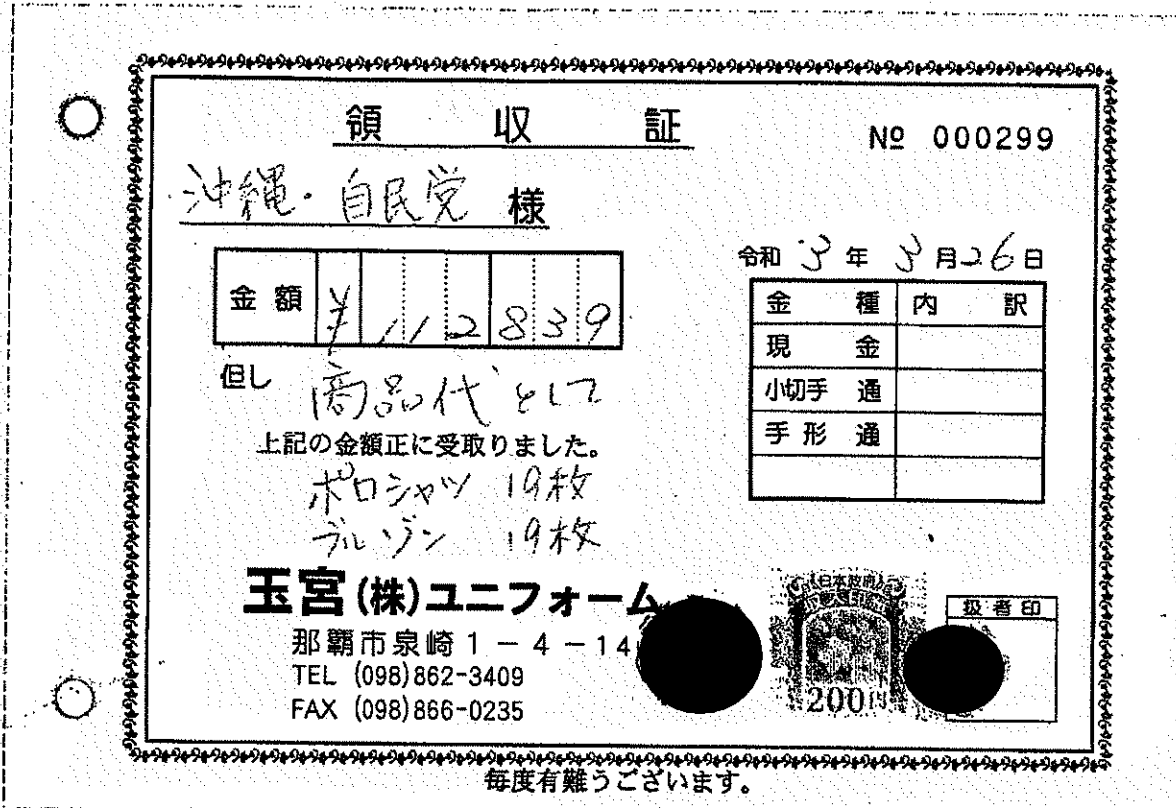 領収証
№ 000299
沖縄・自民党 様
令和 3年 3月26日
金額 ¥112839
金種 内訳
現金
小切手 通
手形 通
但し 商品代として
上記の金額正に受取りました。
ポロシャツ 19枚
ブルゾン 19枚
玉宮(株)ユニフォーム
那覇市泉崎1-4-14
TEL (098)862-3409
FAX (098)866-0235
日本政府
200円
扱者印
毎度有難うございます。